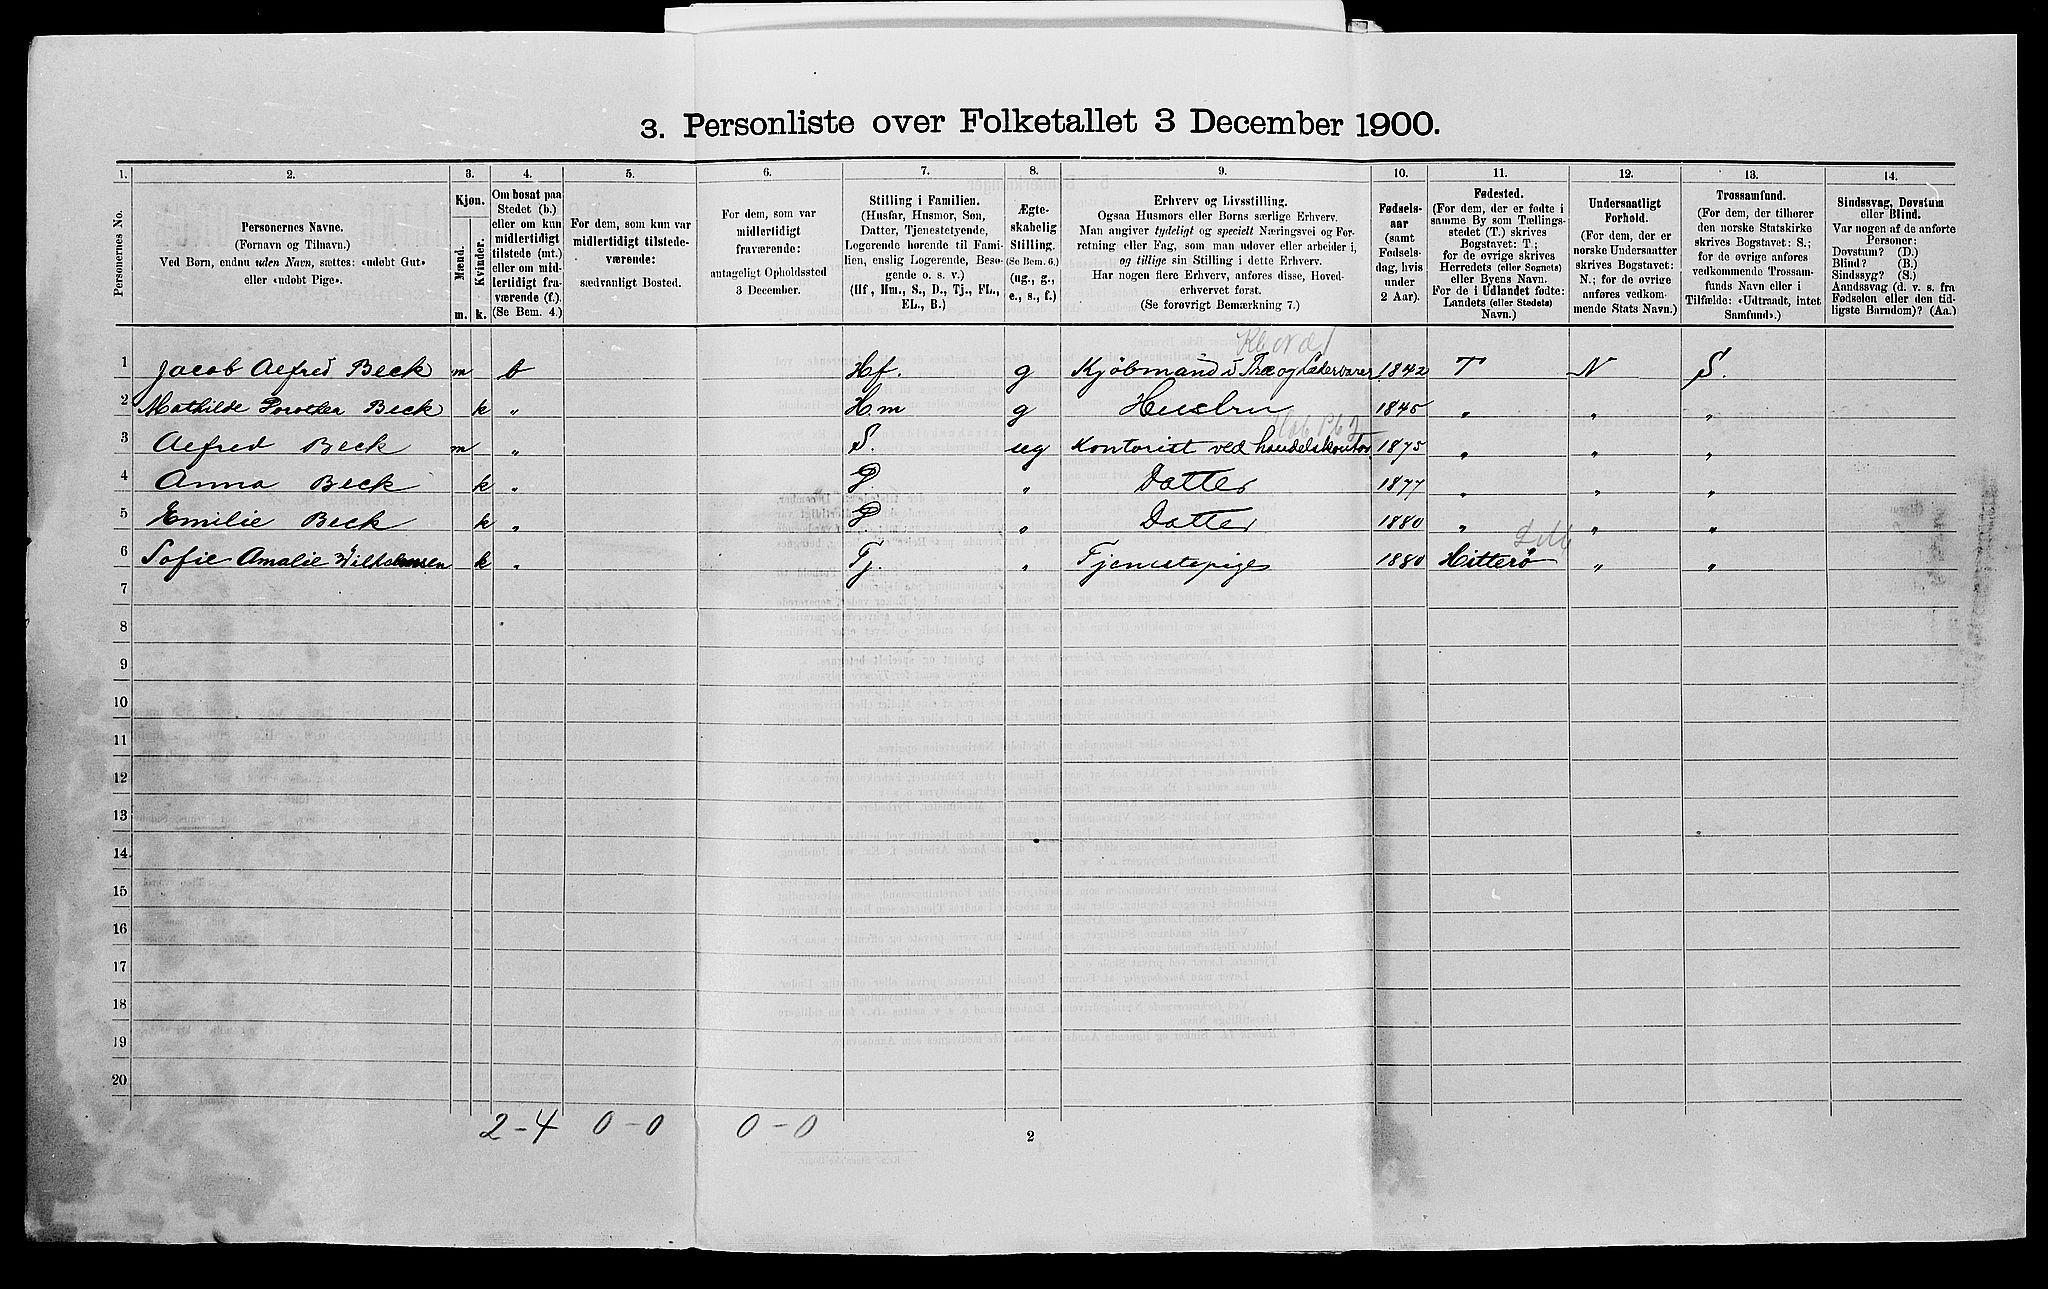 3. Personliste over Folketallet 3 December 1900.
1. 2. 3. 4. 5. 6. 7. 8. 9. 10. 11. 12. 13. 14.
Personernes No.
Personernes Navne.
(Fornavn og Tilnavn.)
Ved Børn, endnu uden Navn, sættes: «udøbt Gut»
eller «udøbt Pige».
Kjøn.
Mænd.
Kvinder.
m. k.
Om bosat paa
Stedet (b.)
eller om kun
midlertidigt
tilstede (mt.)
eller om mid-
lertidigt fra-
værende (f.).
(Se Bem. 4.)
For dem, som kun var
midlertidigt tilstede-
værende:
sædvanligt Bosted.
For dem, som var
midlertidigt
fraværende:
antageligt Opholdssted
3 December.
Stilling i Familien.
(Husfar, Husmor, Søn,
Datter, Tjenestetyende,
Logerende hørende til Fami-
lien, enslig Logerende, Besø-
gende o. s. v.)
(Hf., Hm., S., D., Tj., FL.,
EL., B.)
Ægte-
skabelig
Stilling.
(Se Bem. 6.)
(ug., g.,
e., s., f.)
Erhverv og Livsstilling.
Ogsaa Husmors eller Børns særlige Erhverv.
Man angiver tydeligt og specielt Næringsvei og For-
retning eller Fag, som man udøver eller arbeider i,
og tillige sin Stilling i dette Erhverv.
Har nogen flere Erhverv, anføres disse, Hoved-
erhvervet først.
(Se forøvrigt Bemærkning 7.)
Fødsels-
aar
(samt
Fødsels-
dag, hvis
under
2 Aar).
Fødested.
(For dem, der er fødte i
samme By som Tællings-
stedet (T.) skrives
Bogstavet: T.;
for de øvrige skrives
Herredets (eller Sognets)
eller Byens Navn.
For de i Udlandet fødte:
Landets (eller Stedets)
Navn.)
Undersaatligt
Forhold.
(For dem, der er
norske Undersaatter
skrives Bogstavet:
N.; for de øvrige
anføres vedkom-
mende Stats Navn.)
Trossamfund.
(For dem, der tilhører
den norske Statskirke
skrives Bogstavet: S.;
for de øvrige anføres
vedkommende Trossam-
funds Navn eller i
Tilfælde: «Udtraadt, intet
Samfund».)
Sindssvag, Døvstum
eller Blind.
Var nogen af de anførte
Personer:
Døvstum? (D.)
Blind? (B.)
Sindssyg? (S.)
Aandssvag (d. v. s. fra
Fødselen eller den tid-
ligste Barndom)? (Aa.)
1 Jacob Alfred Beck m b Hf. g Kjøbmand i Træ og Lædervarer 1842 T N S.
2 Mathilde Dorothea Beck k " Hm g Husbru 1845 " " "
3 Alfred Beck m " S. ug Kontorist ved handelskontor 1875 " " "
4 Anna Beck k " D. " Datter 1877 " " "
5 Emilie Beck k " D " Datter 1880 " " "
6 Sofie Amalie Vilhelmsen k " Tj. " Tjenestepige 1880 Hitterø " "
7
8
9
10
11
12
13
14
15
16
17
18
19
20
2-4 0-0 0-0
2